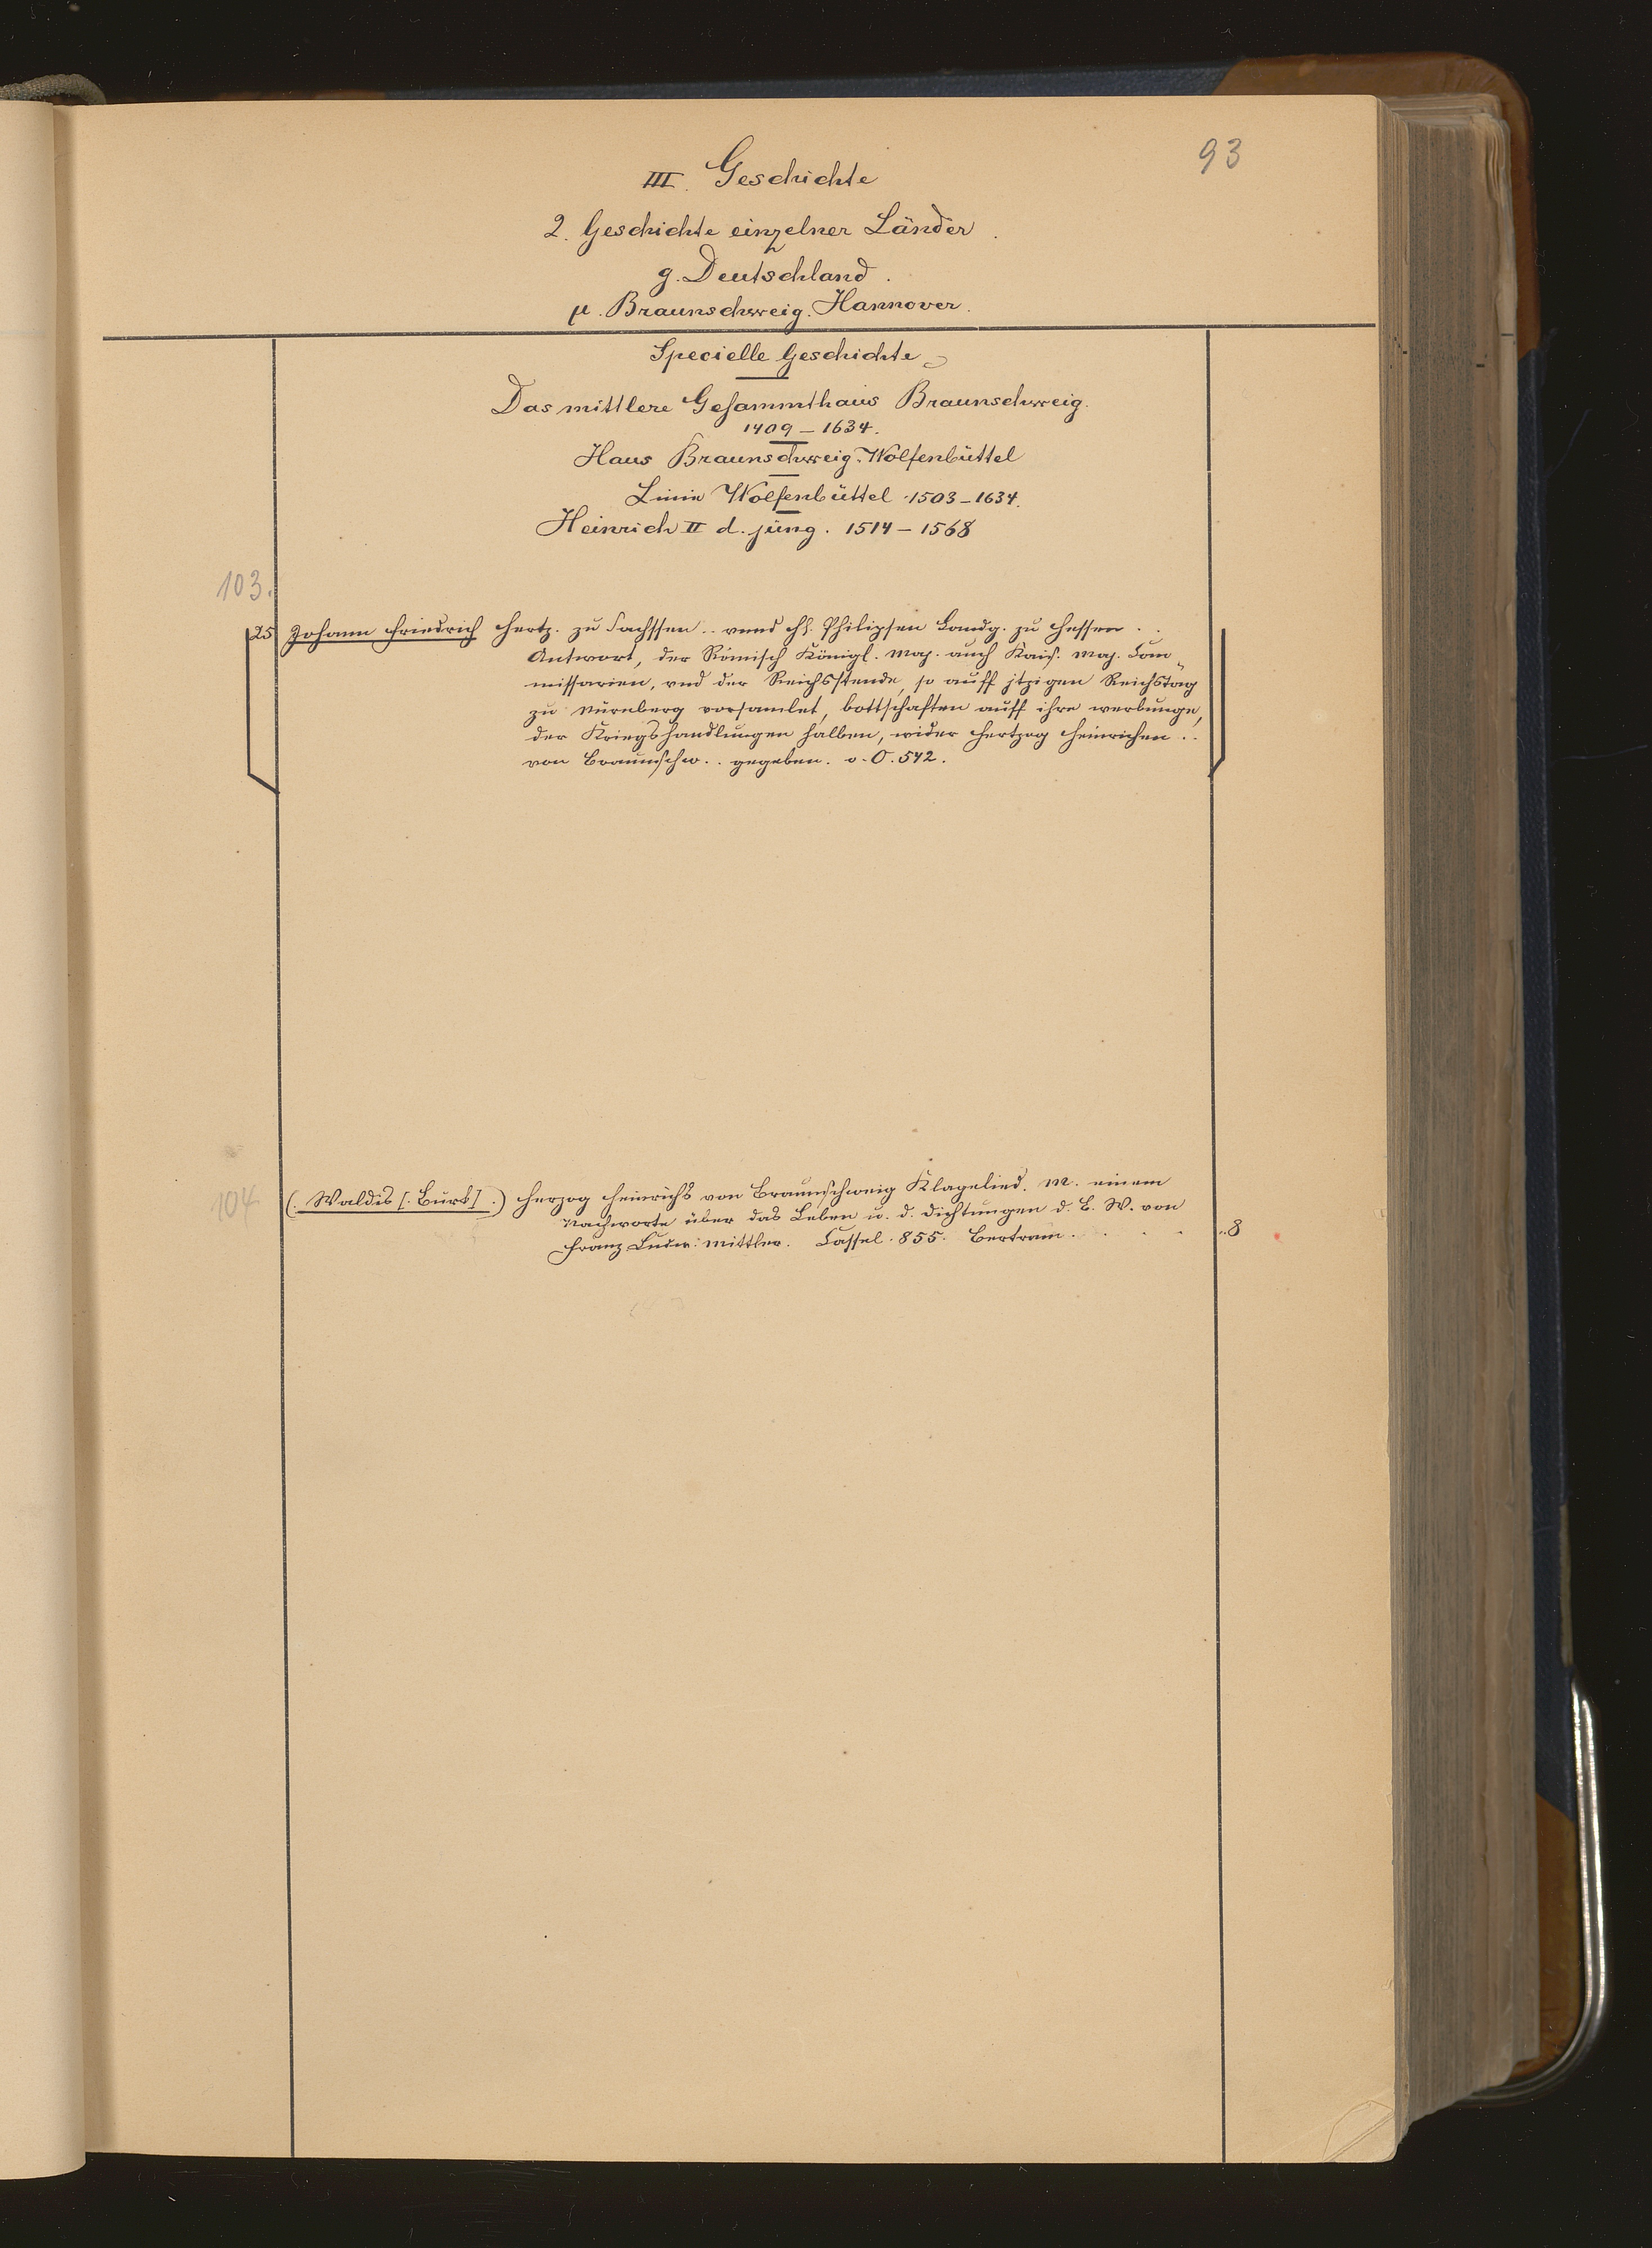 93
III. Geschichte
2. Geschichte einzelner Länder.
g. Deutschland.
μ. Braunschweig. Hannover.
Specielle Geschichte
Das mittlere Gesammthaus Braunschweig.
1409 – 1634.
Haus Braunschweig-Wolfenbüttel
Linie Wolfenbüttel 1503 – 1634.
Heinrich II d. jüng. 1514 – 1568
103.
25 Johann Friedrich Hertz. zu Sachssen .. vnnd H. Philipsen Landg. zu Hessen . .
Antwort, der Römisch Königl. Maj. auch Kais. Maj. Com„
missarien, vnd der Reichsstende, so auff jtzigen Reichstag
zu Nürnberg versamlet, bottschaften auff ihre werbunge,
der Kriegshandlungen halben, wider Hertzog Heinrichen . .
von Braunschw. . gegeben. o. O. 542.
104 (. Waldis [. Burk] .) Herzog Heinrichs von Braunschweig Klagelied. M. einem
Nachworte über das Leben u. d. Dichtungen d. B. W. von
Franz Ludw: Mittler. Cassel. 855. Bertram . . . . ..8